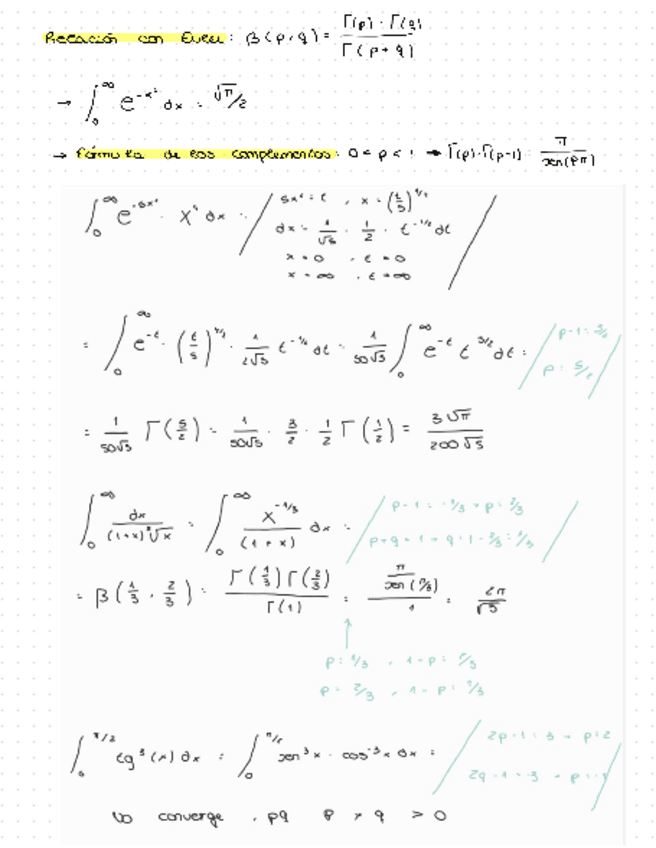 Relación con Euler: β(p,q) = Γ(p)·Γ(q) / Γ(p+q)
→ ∫₀^∞ e^(-x²) dx = √π/2
→ Fórmula de los complementos: 0 < p < 1 → Γ(p)·Γ(p-1) = π / sen(pπ)
∫₀^∞ e^(-5x²) · x⁴ dx = / 5x² = t , x = (t/5)^(1/2)
dx = 1/√5 · 1/2 · t^(-1/2) dt
x = 0 , t = 0
x = ∞ , t = ∞ /
= ∫₀^∞ e^(-t) · (t/5)^(4/2) · 1/(2√5) t^(-1/2) dt = 1/(50√5) ∫₀^∞ e^(-t) t^(3/2) dt = / p-1 = 3/2
p = 5/2 /
= 1/(50√5) Γ(5/2) = 1/(50√5) · 3/2 · 1/2 Γ(1/2) = 3√π / 200√5
∫₀^∞ dx / ((1+x) ³√x) = ∫₀^∞ x^(-1/3) / (1+x) dx = / p-1 = -1/3 → p = 2/3
p+q = 1 → q = 1 - 2/3 = 1/3 /
= β(1/3 , 2/3) = Γ(1/3) Γ(2/3) / Γ(1) = (π / sen(π/3)) / 1 = 2π / √3
p = 1/3 , 1-p = 2/3
p = 2/3 , 1-p = 1/3
∫₀^(π/2) tg³(x) dx = ∫₀^(π/2) sen³x · cos⁻³x dx = / 2p-1 = 3 → p = 2
2q-1 = -3 → p = -1 /
No converge , pq p y q > 0